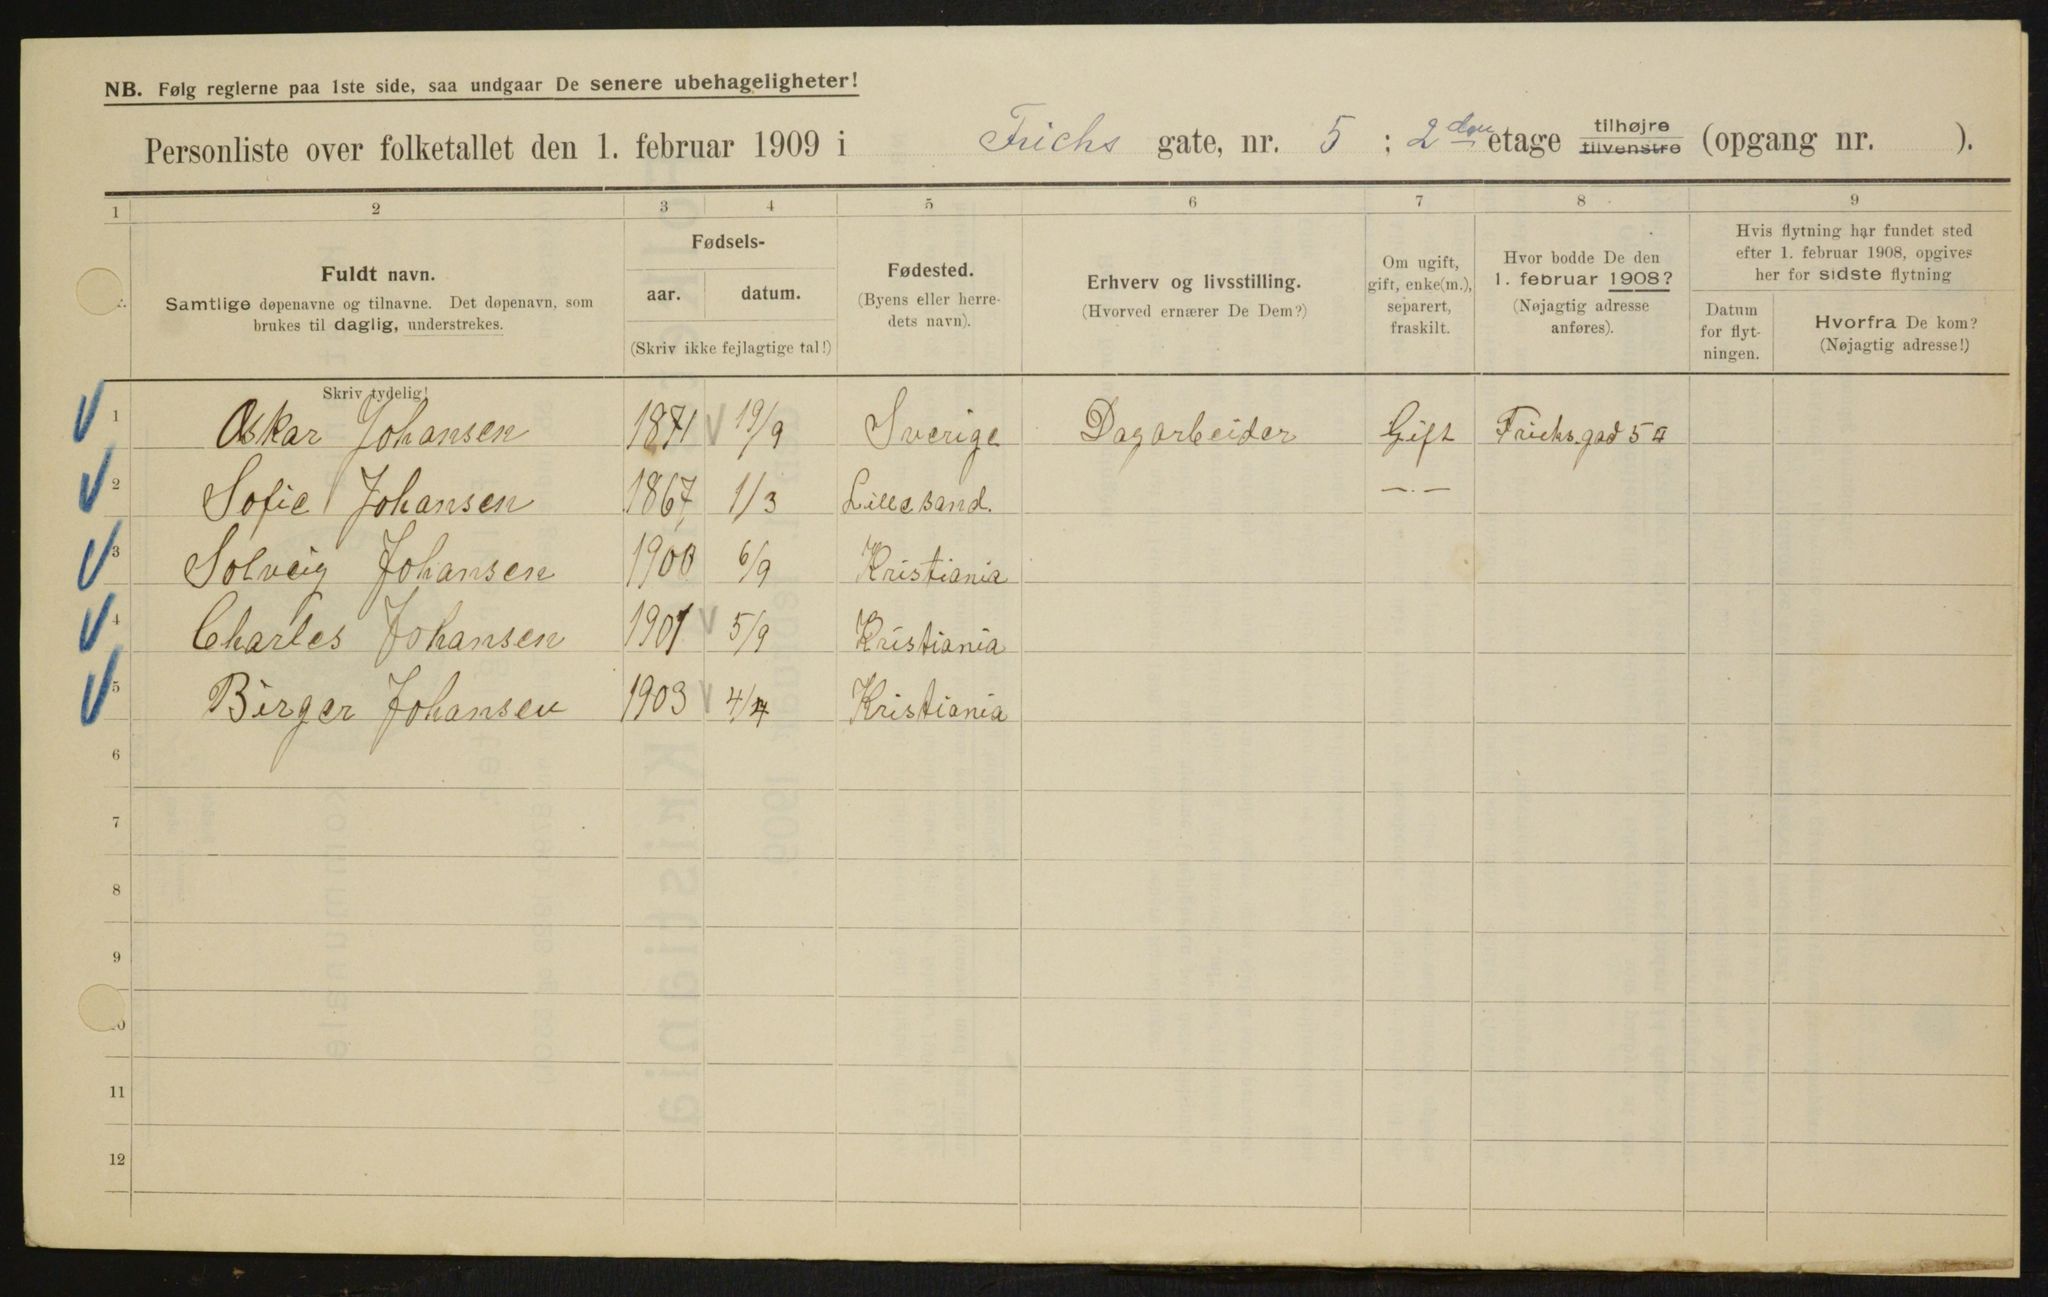 NB. Følg reglerne paa 1ste side, saa undgaar De senere ubehageligheter!
Personliste over folketallet den 1. februar 1909 i Frichs gate, nr. 5 ; 2den etage tilhøjre tilvenstre (opgang nr. ).
1 2 3 4 5 6 7 8 9
Fuldt navn.
Samtlige døpenavne og tilnavne. Det døpenavn, som
brukes til daglig, understrekes.
Fødsels-
aar. datum.
(Skriv ikke fejlagtige tal!)
Fødested.
(Byens eller herre-
dets navn).
Erhverv og livsstilling.
(Hvorved ernærer De Dem?)
Om ugift,
gift, enke(m.),
separert,
fraskilt.
Hvor bodde De den
1. februar 1908?
(Nøjagtig adresse
anføres).
Hvis flytning har fundet sted
efter 1. februar 1908, opgives
her for sidste flytning
Datum
for flyt-
ningen.
Hvorfra De kom?
(Nøjagtig adresse!)
Skriv tydelig!
1 Oskar Johansen 1871 19/9 Sverige Dagarbeider Gift Frichs.gad 5
2 Sofie Johansen 1867 1/3 Lillesand. —.—
3 Solveig Johansen 1900 6/9 Kristiania
4 Charles Johansen 1901 5/9 Kristiania
5 Birger Johansen 1903 4/4 Kristiania
6
7
8
9
10
11
12